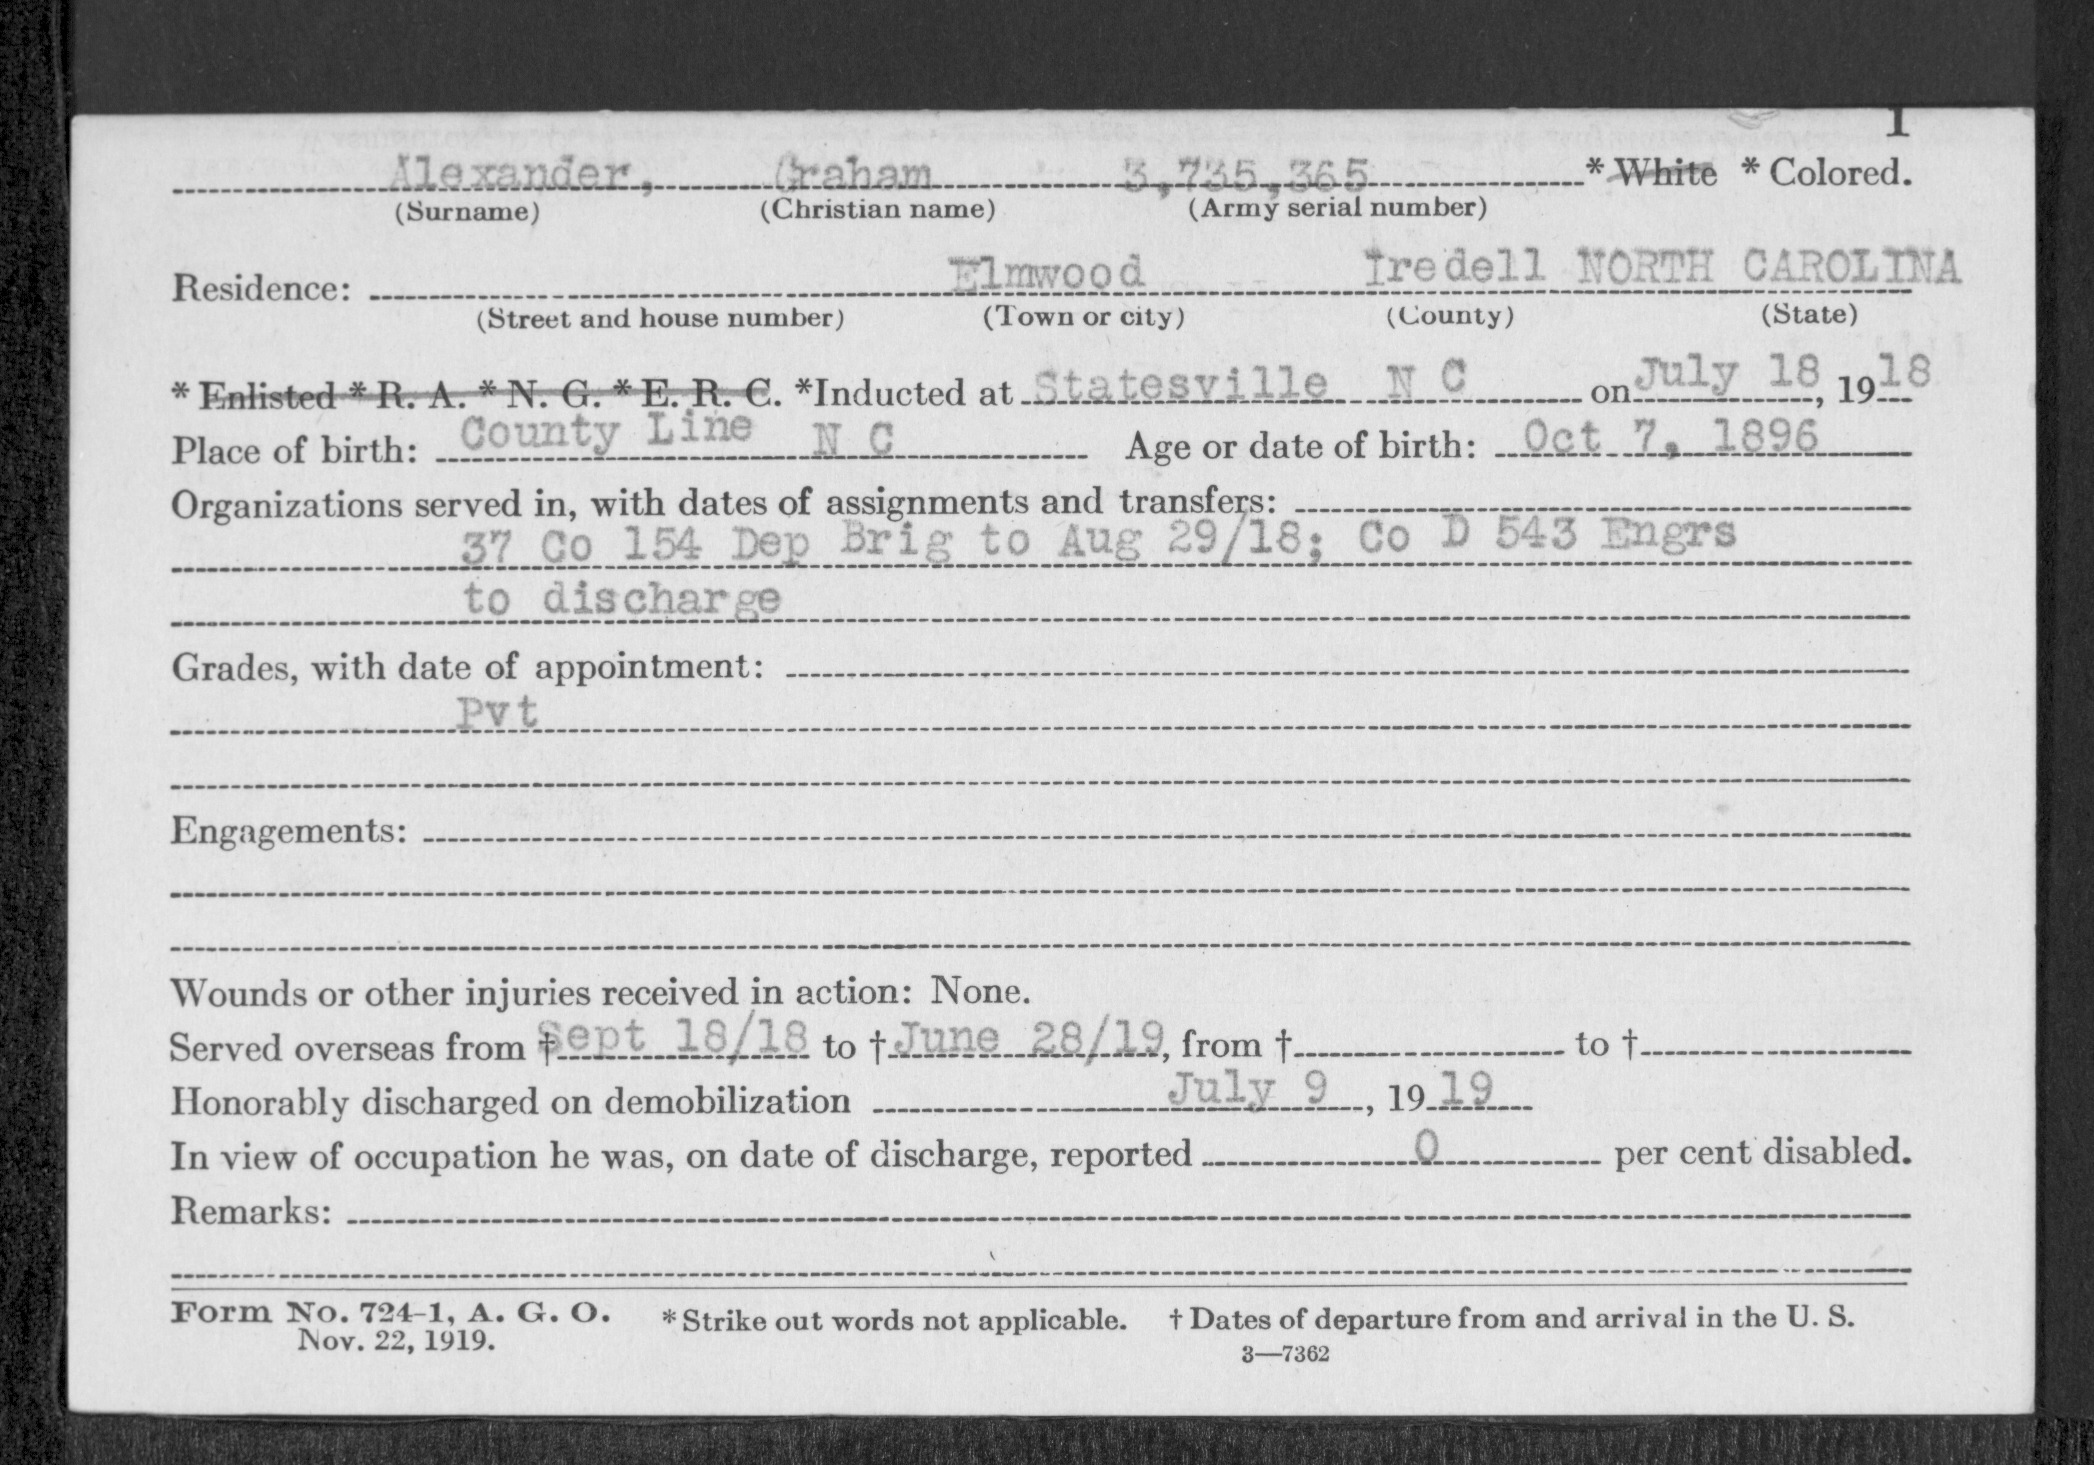 1
Alexander, Graham 3,735,365 * White * Colored.
(Surname) (Christian name) (Army serial number)
Residence: Elmwood Iredell NORTH CAROLINA
(Street and house number) (Town or city) (County) (State)
* Enlisted * R. A. * N. G. * E. R. C. *Inducted at Statesville N C on July 18, 1918
Place of birth: County Line N C Age or date of birth: Oct 7, 1896
Organizations served in, with dates of assignments and transfers:
37 Co 154 Dep Brig to Aug 29/18; Co D 543 Engrs
to discharge
Grades, with date of appointment:
Pvt
Engagements:
Wounds or other injuries received in action: None.
Served overseas from † Sept 18/18 to † June 28/19, from † to †
Honorably discharged on demobilization July 9, 1919
In view of occupation he was, on date of discharge, reported 0 per cent disabled.
Remarks:
Form No. 724-1, A. G. O. * Strike out words not applicable. † Dates of departure from and arrival in the U. S.
Nov. 22, 1919. 3—7362